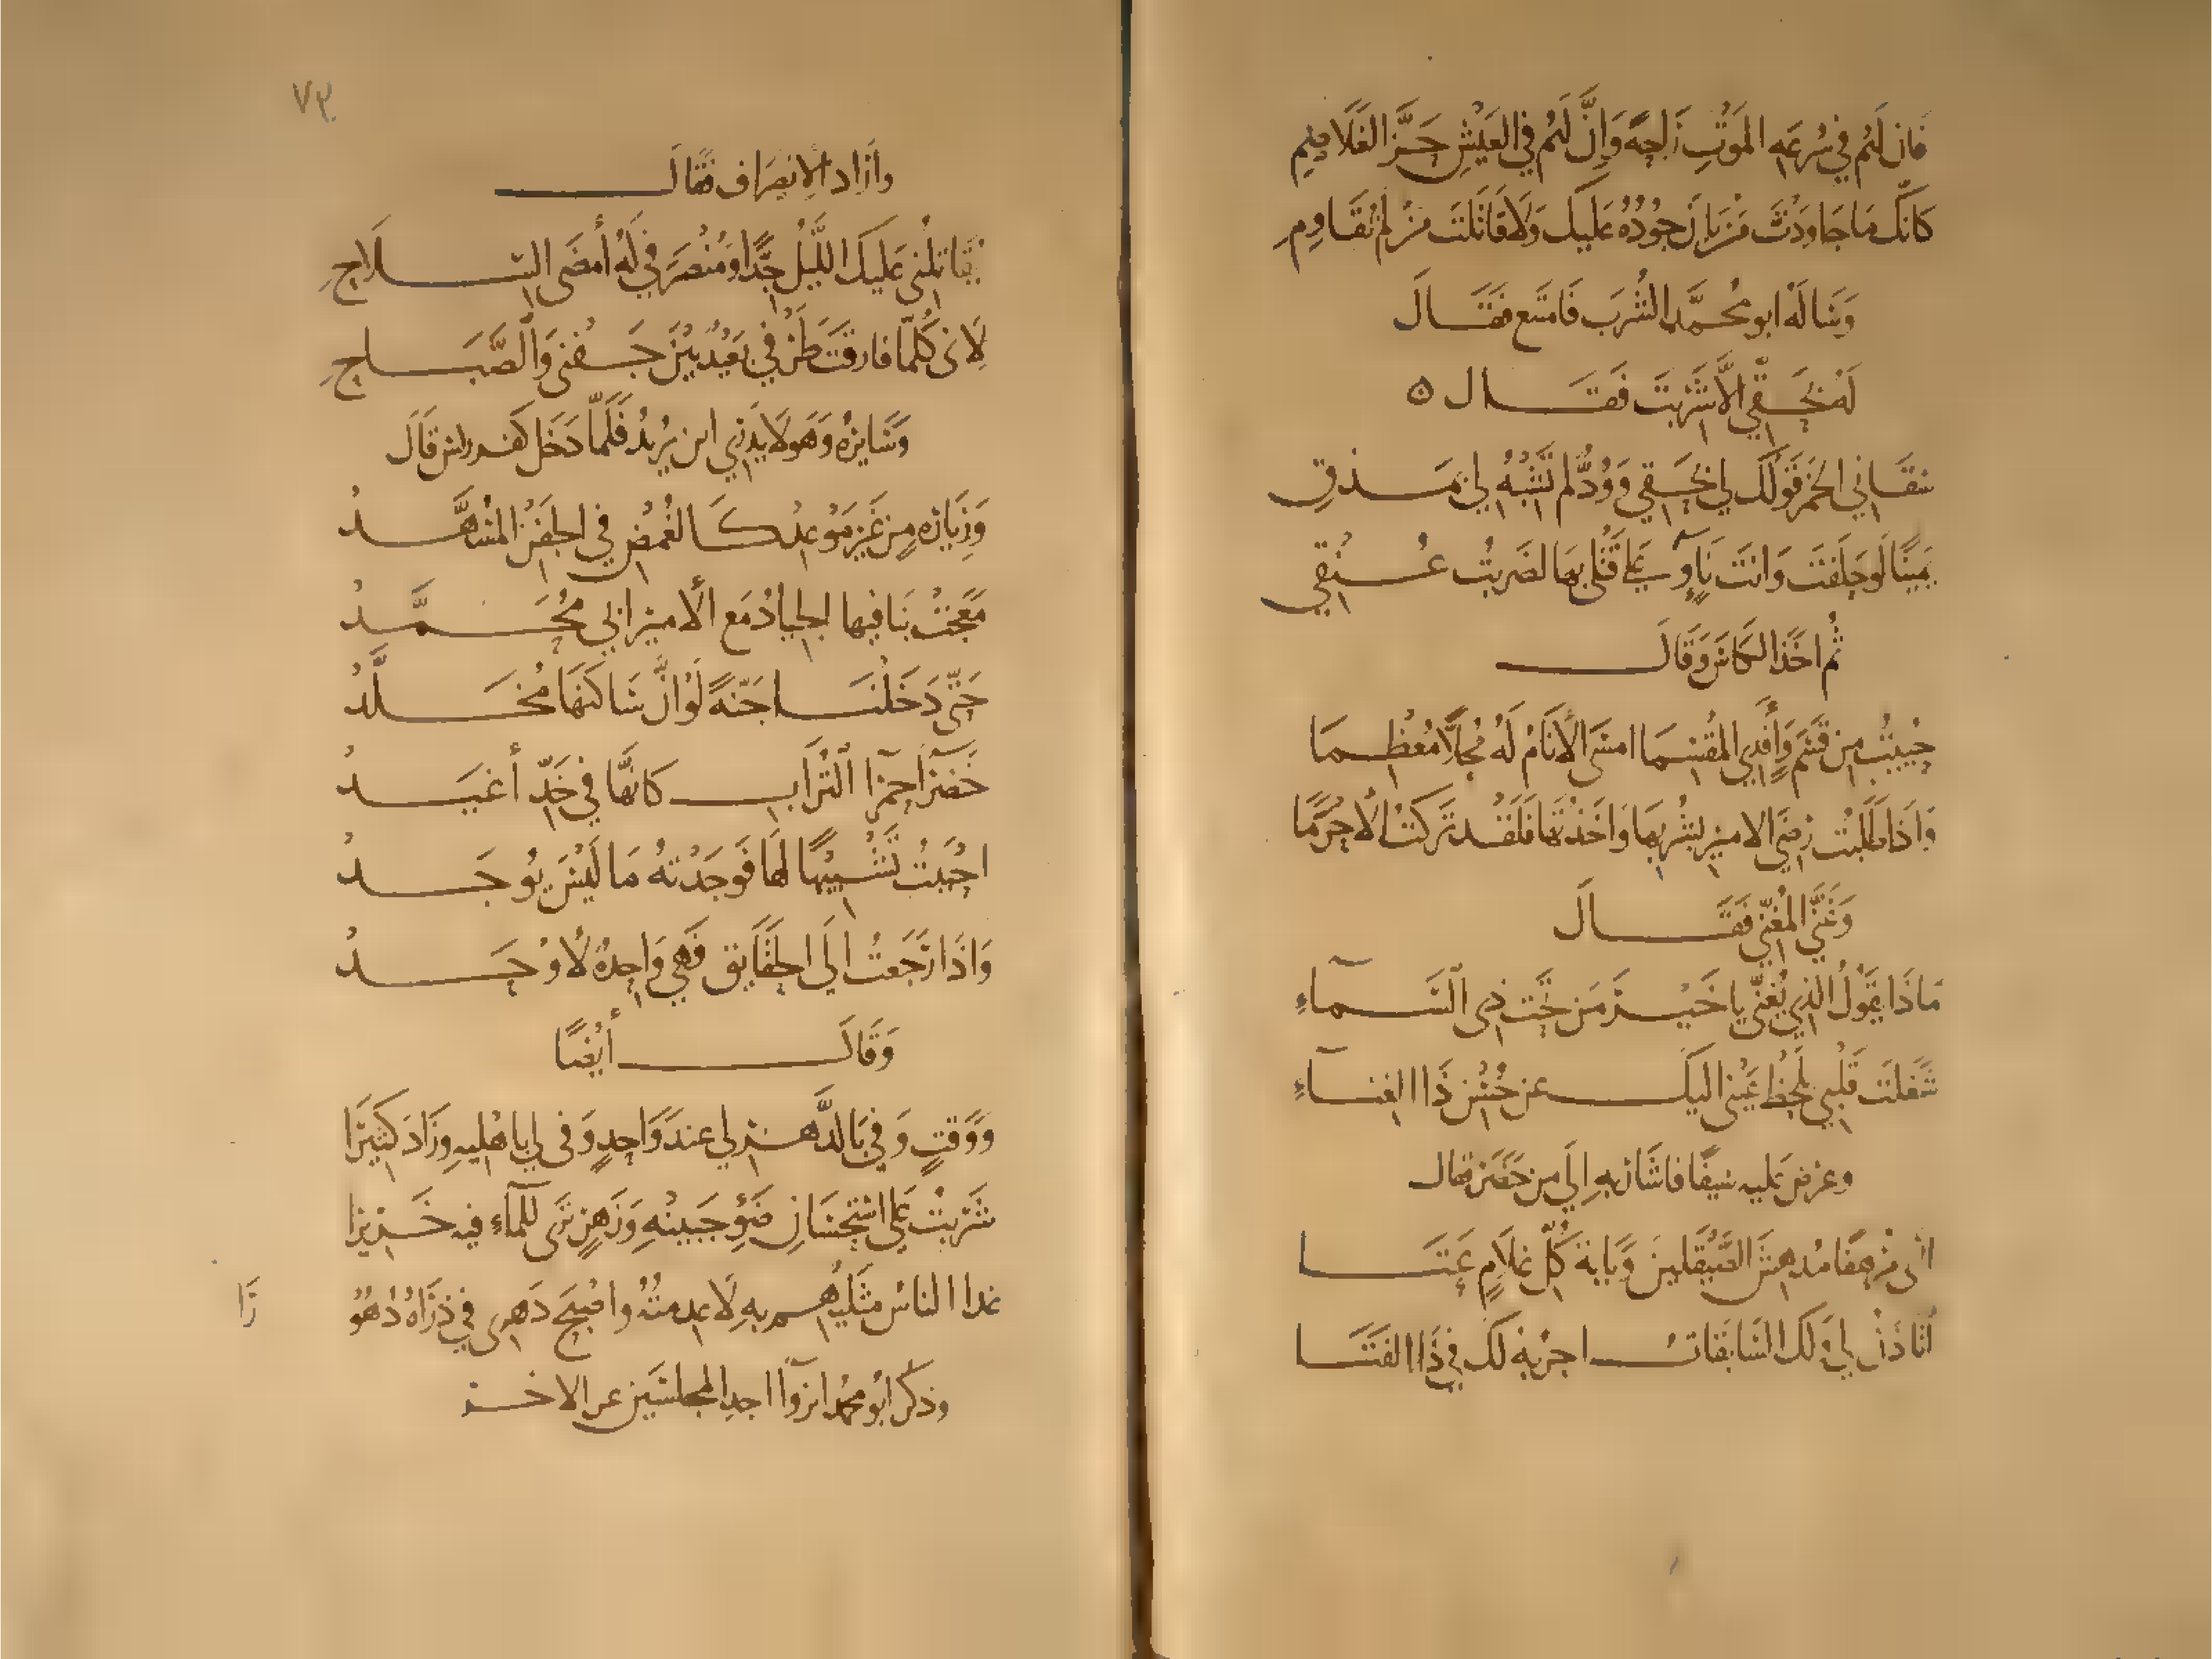 فان لهم في سُرعَهِ المَوْتِ رَاحِهً وَإِنَّ لَهُم في العَيْشِ حَزَّ الغَلَاصِمِ
كَأنّكَ مَا جَاوَدْتَ مَنْ بَانَ جُوْدُهُ عَلَيكَ وَلَا قَاتَلتَ مَنْ لَمْ تُقَاوِمِ
وَسَالَهُ ابو محُمَّد الشُربَ فَامتَنع فَقَالَ
لَهُ بحَقّي الَّا شَرِبتَ فَقَال ٥
سَقَاني الخَمرَ قَوْلُكَ لي بحَقي وَوُدٌّ لم تَشُبْهُ لي بمَذقِ
يَمِينًا لَو حَلَفتَ وَانتَ نَآءٍ عَلَى قَتْلي بهَا لضَرَبتُ عُنُقِي
ثُم اخَذَ الكَاسَ وَقَالَ
حُيِيتُ مِن قَسَمٍ وَأَفدِي المُقْسِمَا امسَى الأَنَامُ لَهُ مُجِلًّا مُعْظِمَا
وَاذَا طَلَبْتُ رِضَى الامير بشُربهَا وَاخَذتُهَا فَلَقَد تَركتُ الأحرَمَا
وَغَنَّى المُغَنّي فَقَالَ
مَاذَا يَقُولُ الذي يُغَنّي يا خَيْرَ مَن تَحْت ذِي السَّمآءِ
شَغلَت قَلْبي بلَحْظِ عَيْني اليكَ عن حُسْنِ ذَا الغنآءِ
وعرض عَليه سَيفًا فاشَارَ بهِ الَى من حَضَر فقال
ارَى مُرهَفًا مُدهِشَ الصَّيْقَلِينَ وَبَابَةَ كُلِّ غلَامٍ عَتَا
أتَاذَن لي وَلَكَ السَابقَاتُ اجرّبهُ لَكَ في ذَا الفَتَا
٧٣
وارَاد الانصِرَاف فقَالَ
يُقَاتلُني عَليكَ اللَّيْلُ جِدًّا وَمُنْصَرَفي لَهُ أمضَى السِّلَاحِ
لأنّي كُلَّمَا فارقتَ طَرْفي بَعيْدٌ بَيْنَ جَفْني وَالصَّبَاحِ
وَسَايرَهُ وَهو لا يَدري اين يُريْدُ فَلَمَّا دَخَل كفرديس قَالَ
وَزِيَارَهٍ مِن غَيرِ مَوْعِدْ كَالغُمْضِ في الجَفْنِ المُسَهَّدْ
مَعَجتْ بنَا فيها الجيادُ مَع الأَميرِ ابي مُحَمَّدْ
حَتّى دَخَلْنَا جَنّهً لَوْ انَّ سَاكنَهَا مُخَلَّدْ
خَضرَآءَ حَمرآءَ التُّرَابِ كَأنّهَا في خَدِّ أغيَدْ
احْبَبْتُ تَشْبيْهًا لهَا فَوَجَدْتهُ مَا لَيْسَ يُوجَدْ
وَاذَا رَجَعتُ الَى الحقَايقِ فَهي وَاحِدهٌ لأَوْحَدْ
وَقَالَ أيْضًا
وَوَقتٍ وَفي بَالدَّهرِ لي عندَ وَاحِدٍ وَفى لي باهْلِيهِ وزَادَ كَثيرَا
شَرَبْتُ عَلى اسْتحسَانِ ضَوْءِ جَبينهِ وَزَهرٍ تَرَى للمآءِ فيه خَرِيرَا
غدا الناسُ مثلَيْهِم بهِ لَا عدمتُهُ واصْبَحَ دَهرِي في ذرَاهُ دُهُوْ
رَا
وذكر أبُو محمد انزوآ احد المجلسَين عن الاخر